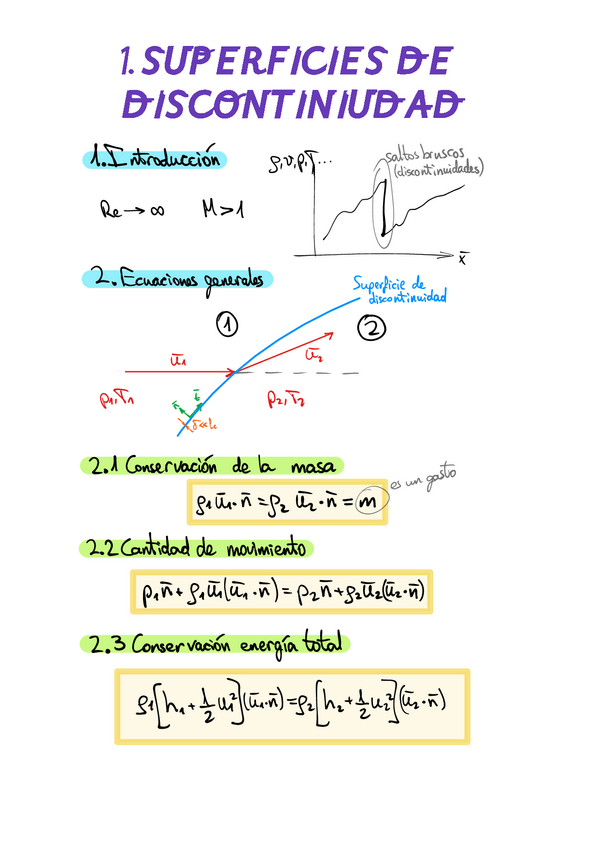 1. SUPERFICIES DE
DISCONTINIUDAD
1. Introducción
ρ, v, p, T...
saltos bruscos
(discontinuidades)
Re → ∞ M > 1
x̄
2. Ecuaciones generales
Superficie de
discontinuidad
1 2
ū₁ ū₂
p₁, T₁ p₂, T₂
n̄ t̄
δ<<L
2.1 Conservación de la masa
ρ₁ ū₁·n̄ = ρ₂ ū₂·n̄ = m̄
es un gasto
2.2 Cantidad de movimiento
p₁n̄ + ρ₁ū₁(ū₁·n̄) = p₂n̄ + ρ₂ū₂(ū₂·n̄)
2.3 Conservación energía total
ρ₁[h₁ + 1/2 u₁²](ū₁·n̄) = ρ₂[h₂ + 1/2 u₂²](ū₂·n̄)